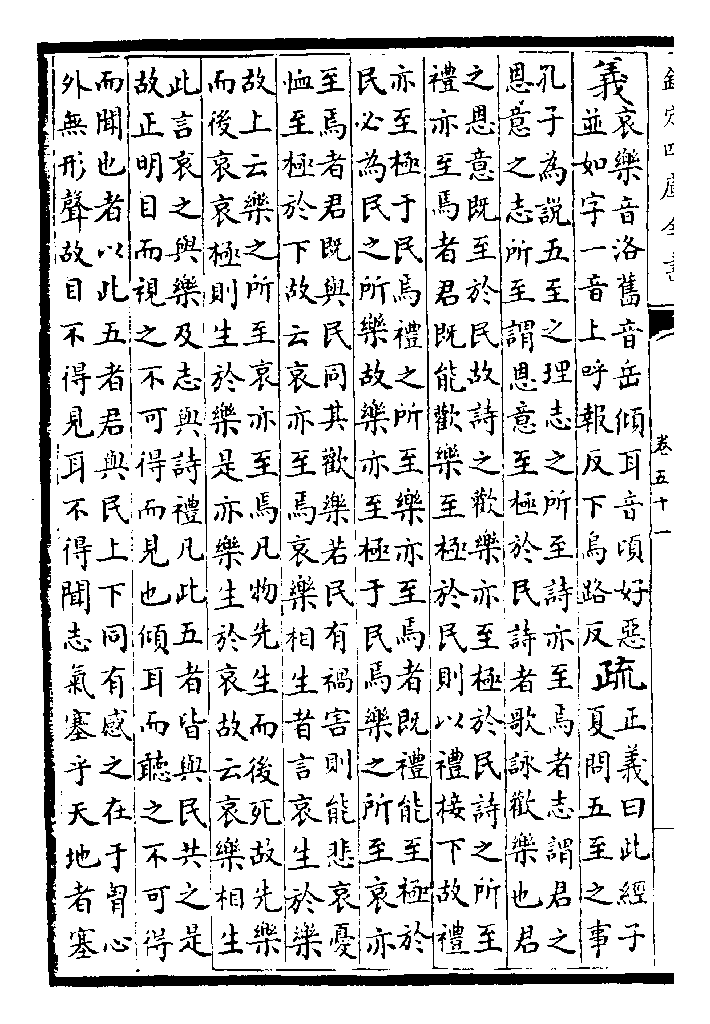 欽定四庫全書
卷五十一
義
哀樂音洛舊音岳傾耳音頃好惡
並如字一音上呼報反下烏路反
疏
正義曰此經子
夏問五至之事
孔子為説五至之理志之所至詩亦至焉者志謂君之
恩意之志所至謂恩意至極於民詩者歌詠歡樂也君
之恩意既至於民故詩之歡樂亦至極於民詩之所至
禮亦至焉者君既能歡樂至極於民則以禮接下故禮
亦至極于民焉禮之所至樂亦至焉者既禮能至極於
民必為民之所樂故樂亦至極于民焉樂之所至哀亦
至焉者君既與民同其歡樂若民有禍害則能悲哀憂
恤至極於下故云哀亦至焉哀樂相生者言哀生於樂
故上云樂之所至哀亦至焉凡物先生而後死故先樂
而後哀哀極則生於樂是亦樂生於哀故云哀樂相生
此言哀之與樂及志與詩禮凡此五者皆與民共之是
故正明目而視之不可得而見也傾耳而聽之不可得
而聞也者以此五者君與民上下同有感之在于胷心
外無形聲故目不得見耳不得聞志氣塞乎天地者塞